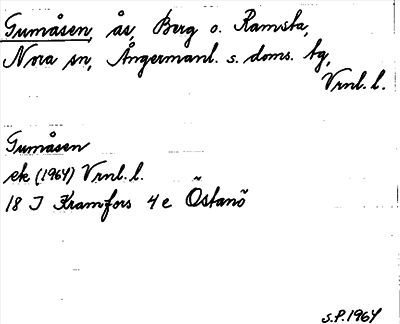 Gumåsen, ås, Berg o. Ramsta,
Nora sn, Ångermanl. s. doms. tg,
Vrnl. l.
Gumåsen
ek (1964) Vrnl. l.
18 J Kramfors 4 e Östanö
S.P. 1964